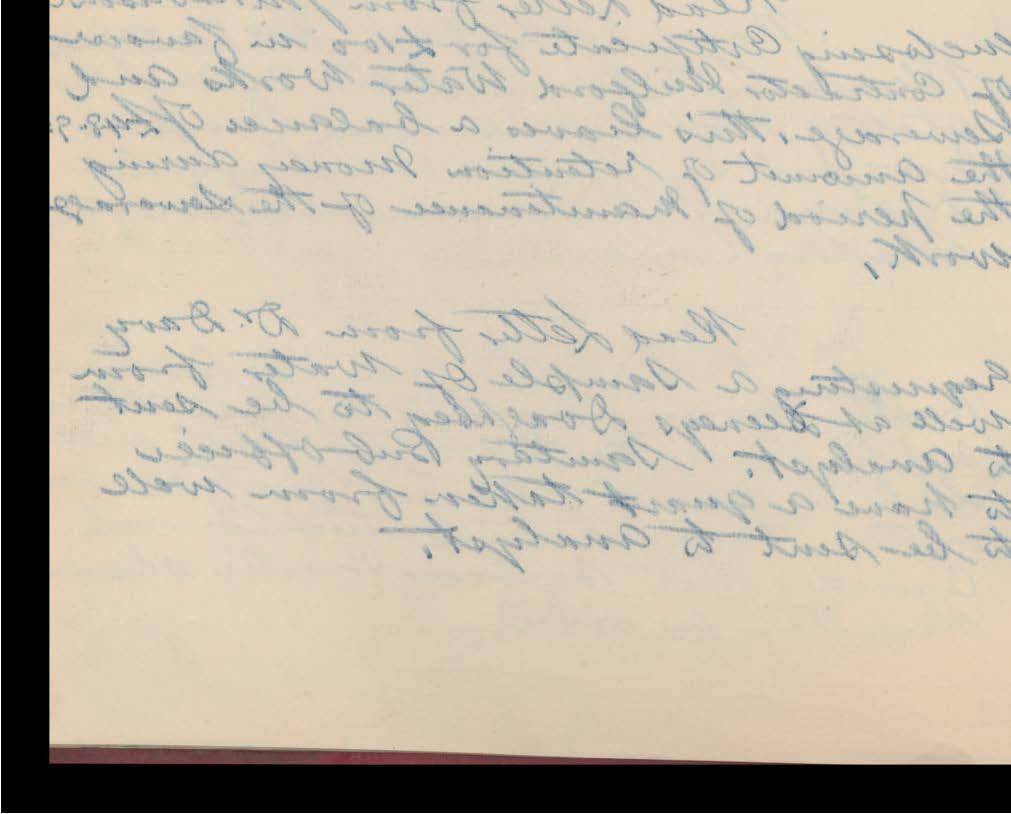 Read Letter from
inclosing Certificate for £100 in favour
of Contractor Milford Water Works and
Sewerage. This leaves a balance of
the amount of retention money during
the period of maintenance of the Sewerage
work,
Read Letter from Dr. Davy
requesting a Sample of Water from
well at Deenys, to be sent
to Analyst. Sanitary Sub-officer
to have a quart taken from well
to be sent to Analyst.